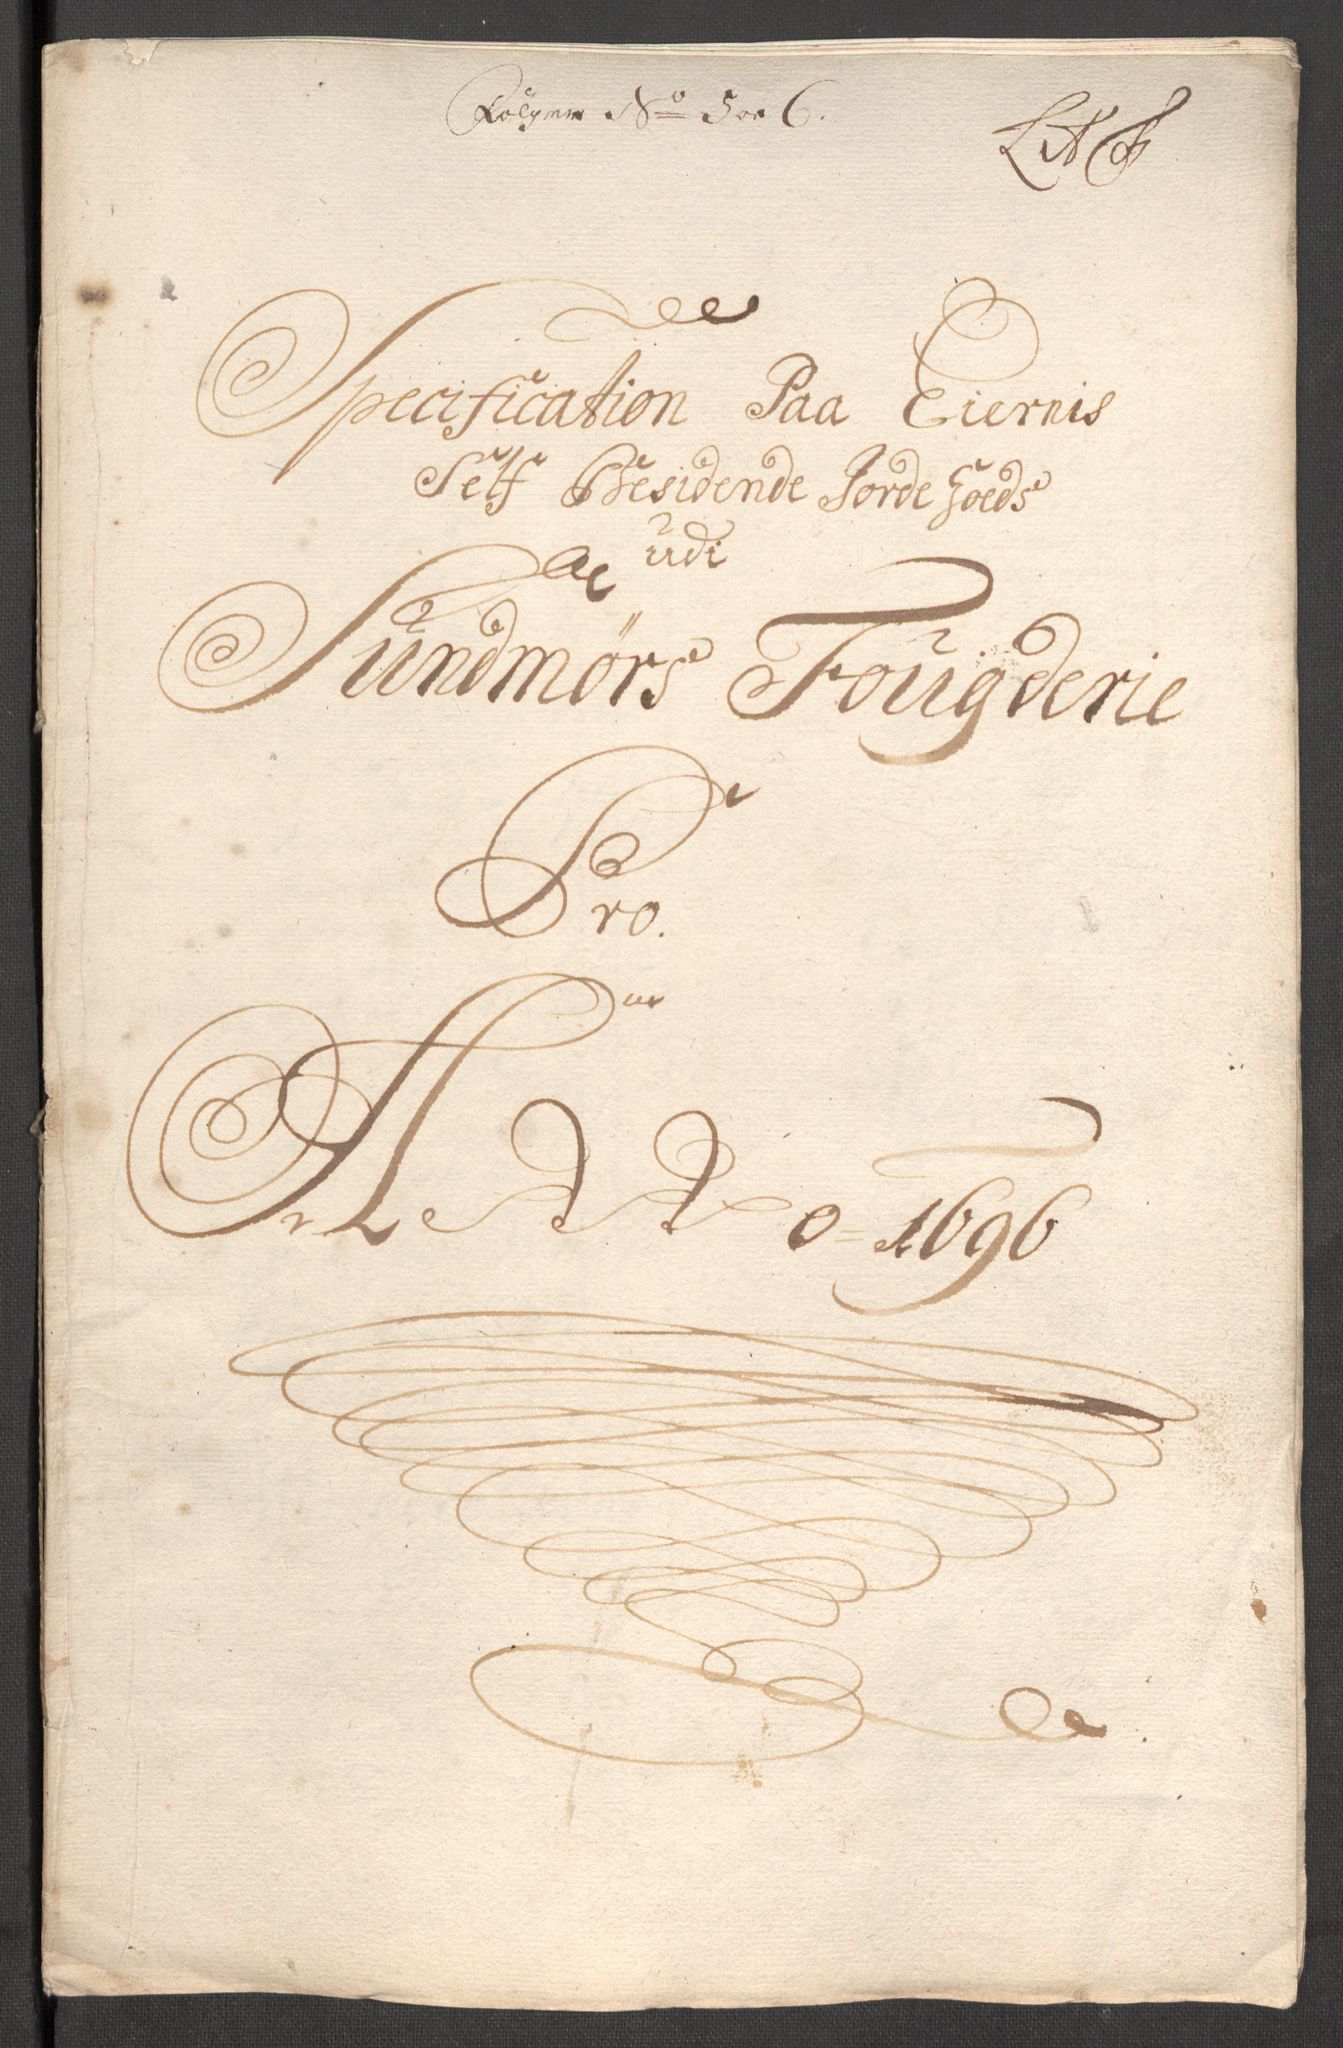 Følger No 5 oc 6.
Lit
Specification Paa Eiernis
Self Besidende Jorde Goeds
udi
Sundmørs Fougderie
Pro.
Anno 1696